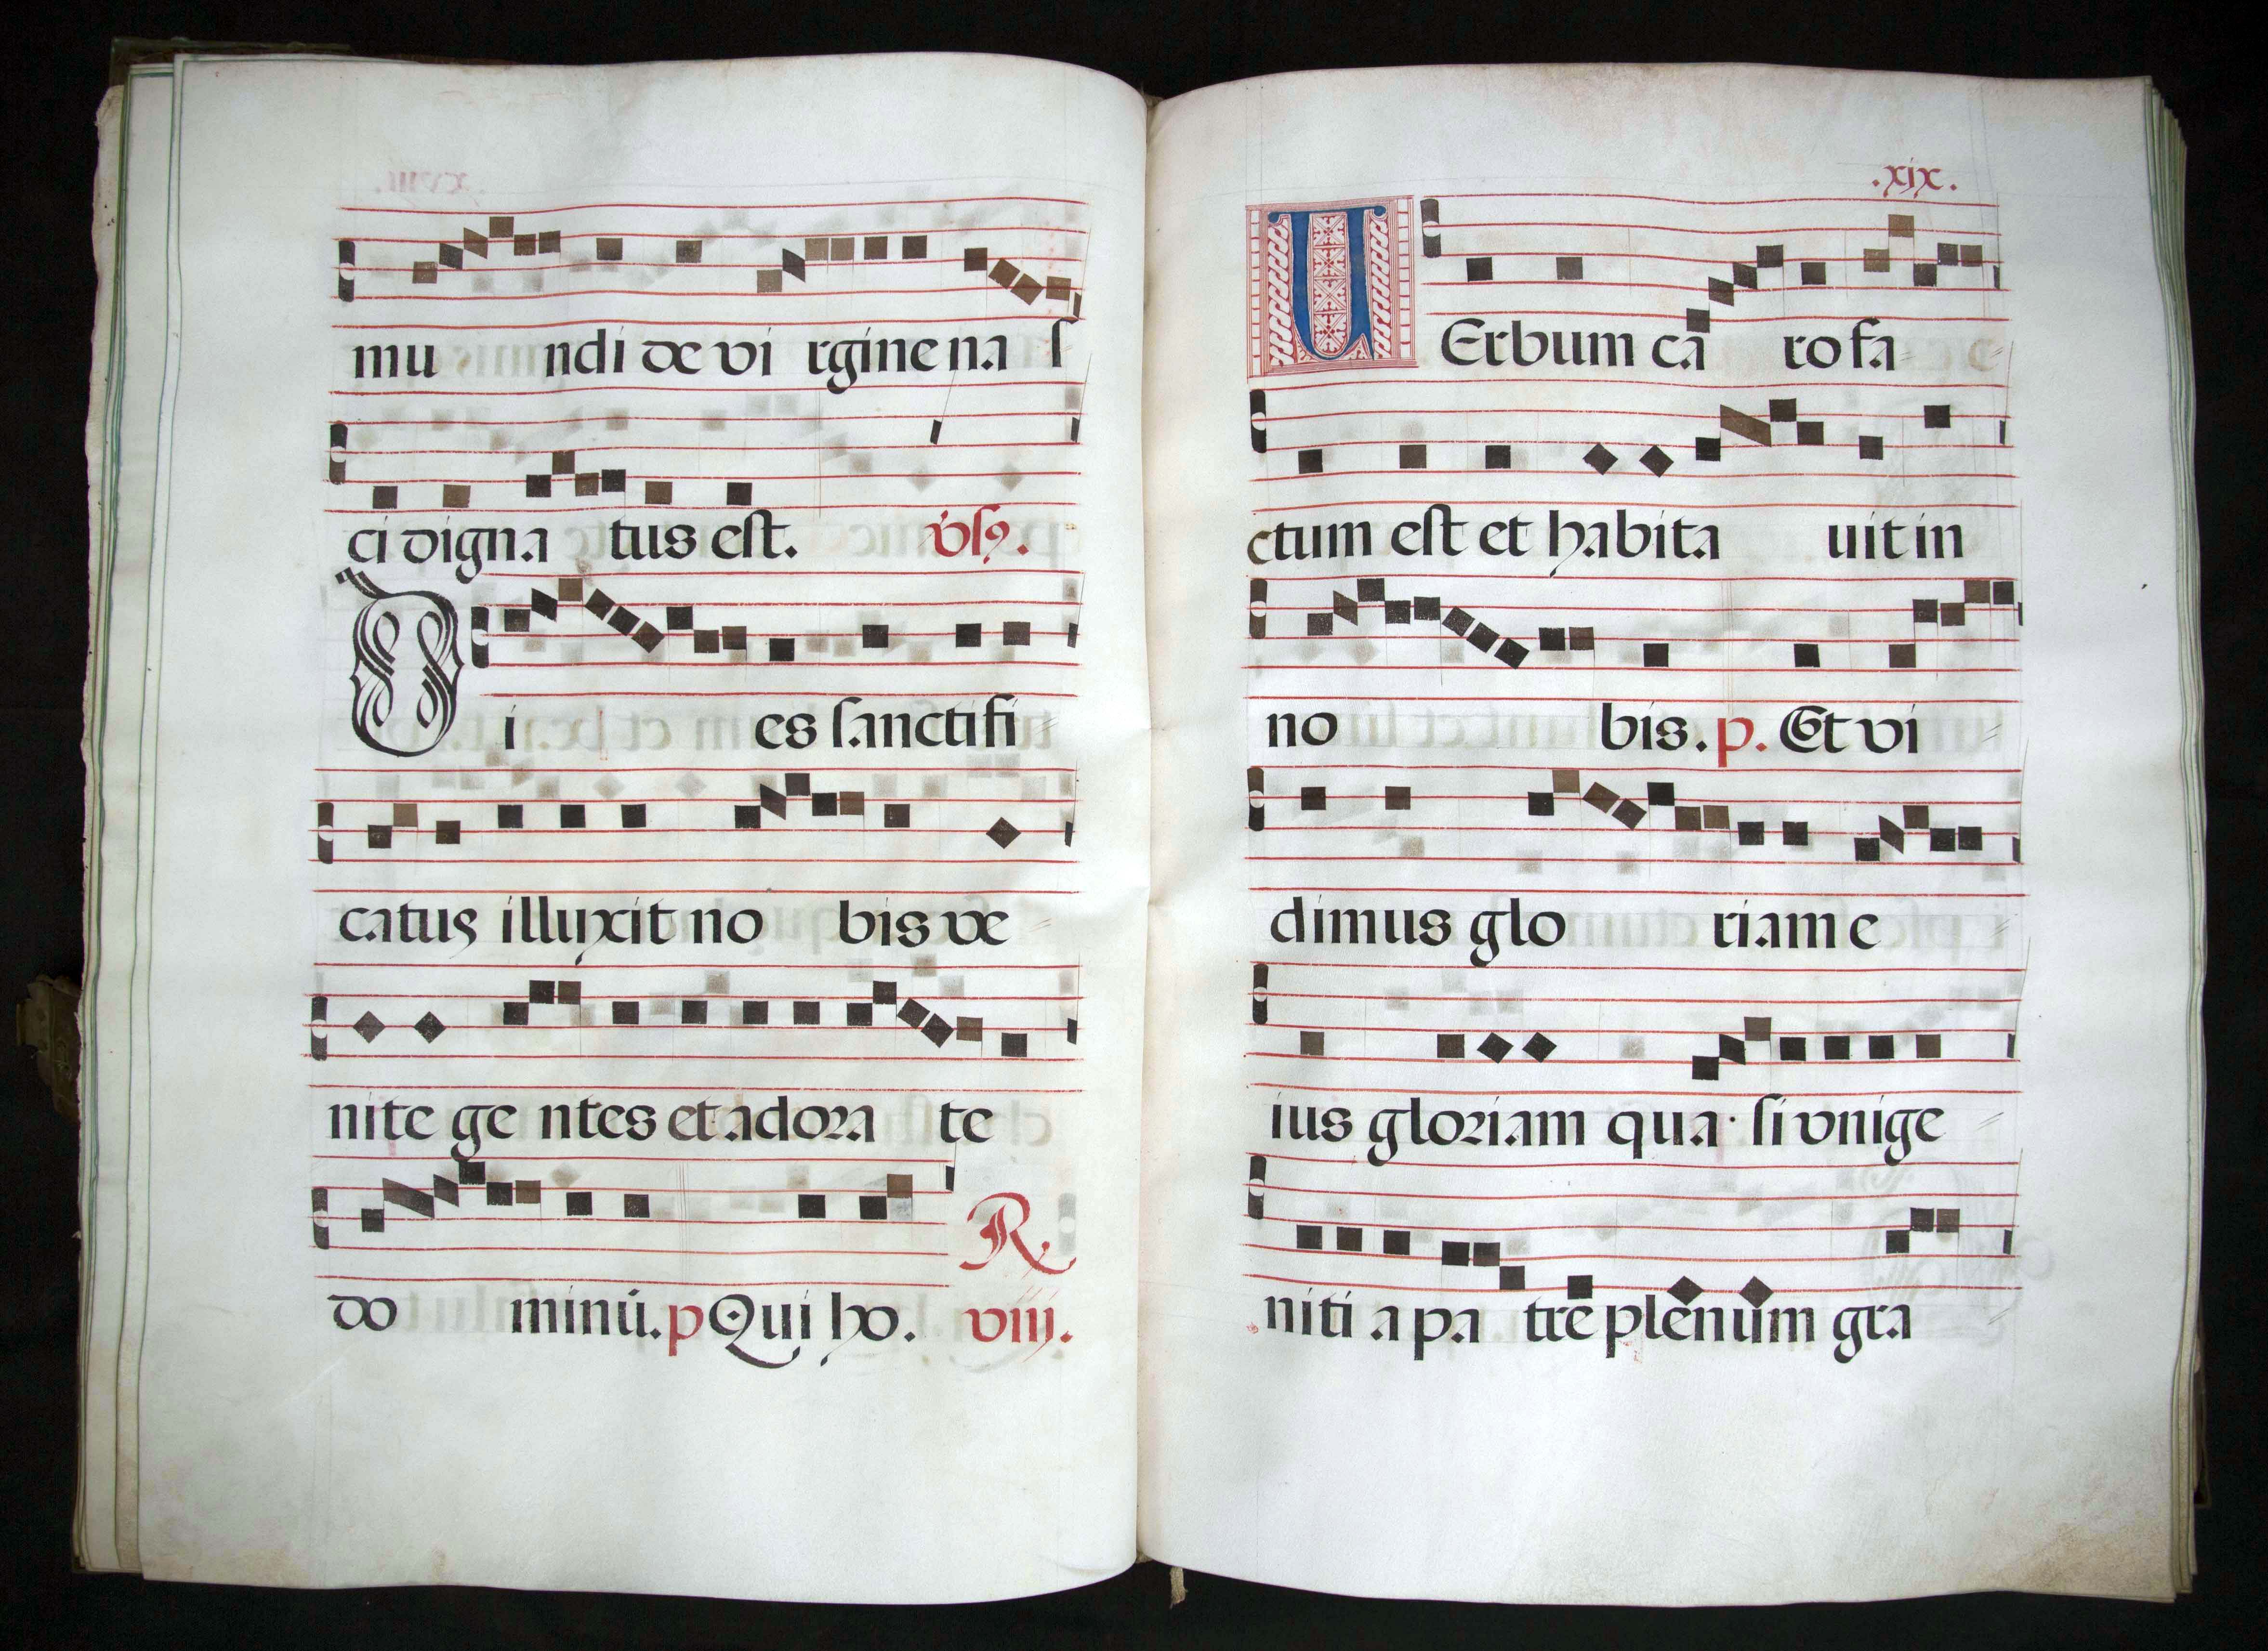 mu ndi de vi rgine na s
ci digna tus est. v̇sꝰ.
Di es sanctifi
catus illuxit no bis ve
nite ge ntes et adora te
do minū. p Qui ho. R. viij.
.xix.
UErbum ca ro fa
ctum est et habita uit in
no bis. p. Et vi
dimus glo riam e
ius gloriam qua si vnige
niti a pa tre plenum gra